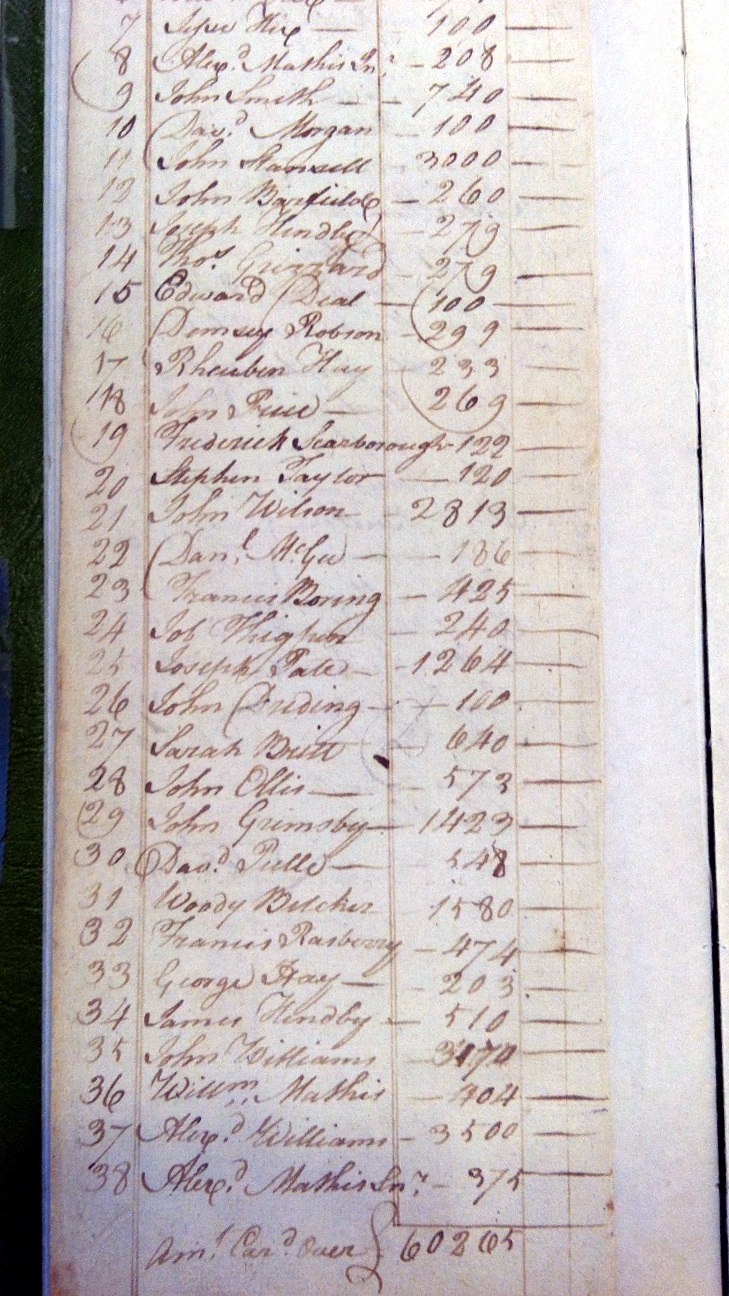 7 Hix — 100 —
8 Alexd. Mathis Jnr. — 208 —
9 John Smith — 740 —
10 Davd. Morgan 100 —
11 John Stansell 3000 —
12 John Barfield — 260 —
13 Joseph Hindby — 279 —
14 Thos. Grizzard — 279 —
15 Edward Deal — 100 —
16 Demsey Robson — 299 —
17 Rheuben Hay — 233 —
18 John — 269 —
19 Frederick Scarborough — 122 —
20 Stephen Taylor — 120 —
21 John Wilson — 2813 —
22 Danl. McGee — 186 —
23 Francis Boring — 425 —
24 Job Thigpen — 240 —
25 Joseph Pate — 1264 —
26 John Dreding — 100 —
27 Sarah Britt — 640 —
28 John Ellis — 573 —
29 John Grimsby — 1423 —
30 Davd. — 548 —
31 Woody Belcher — 1580 —
32 Francis Rasberry — 474 —
33 George Hay — 203 —
34 James Hindby — 510 —
35 John Williams — 3170 —
36 Willm. Mathis — 404 —
37 Alexd. Williams — 3500 —
38 Alexd. Mathis Snr. — 375 —
Amt. Card. Over } 60265